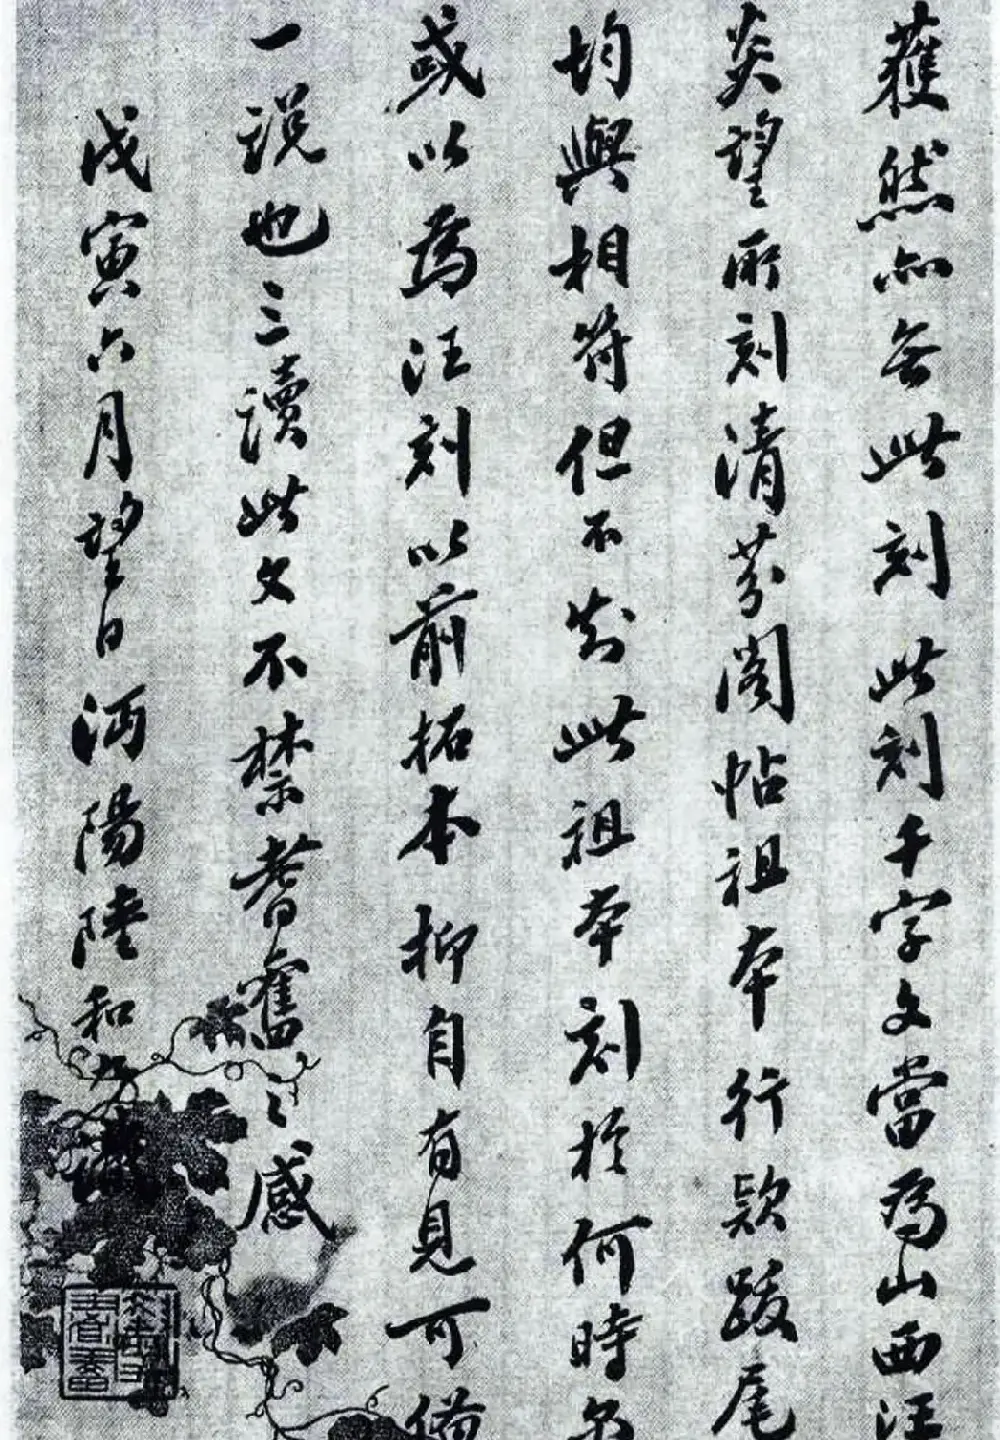 獲然亦無此刻此刻千字文當為山西汪
炎望所刻清芬閣帖祖本行款跋尾
均與相符但不知此祖本刻於何時
或以為汪刻以前拓本抑自有見可備
一說也三讀此文不禁耆舊之感
戊寅六月望日沔陽陸和九識